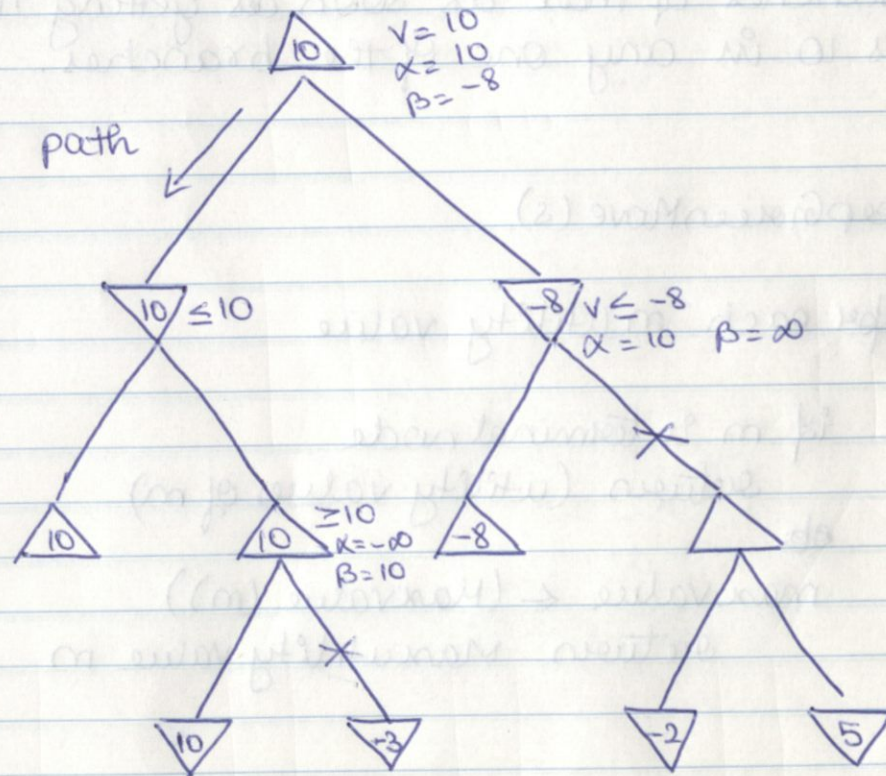 10
V = 10
α = 10
β = -8
path
10 ≤ 10
-8 V ≤ -8
α = 10 β = ∞
10
10 ≥ 10
α = -∞
β = 10
-8
10
-3
-2
5